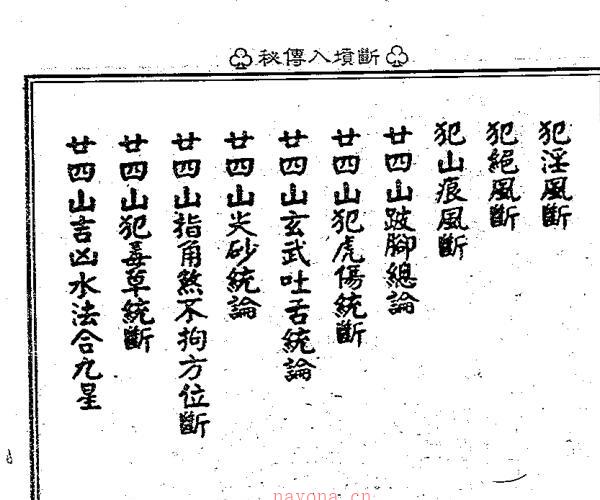 ♧秘傳入墳斷♧
犯淫風斷
犯絕風斷
犯山痕風斷
廿四山跛腳總論
廿四山犯虎傷統斷
廿四山玄武吐舌統論
廿四山尖砂統論
廿四山指角煞不拘方位斷
廿四山犯毒草統斷
廿四山吉凶水法合九星
nayona.cn